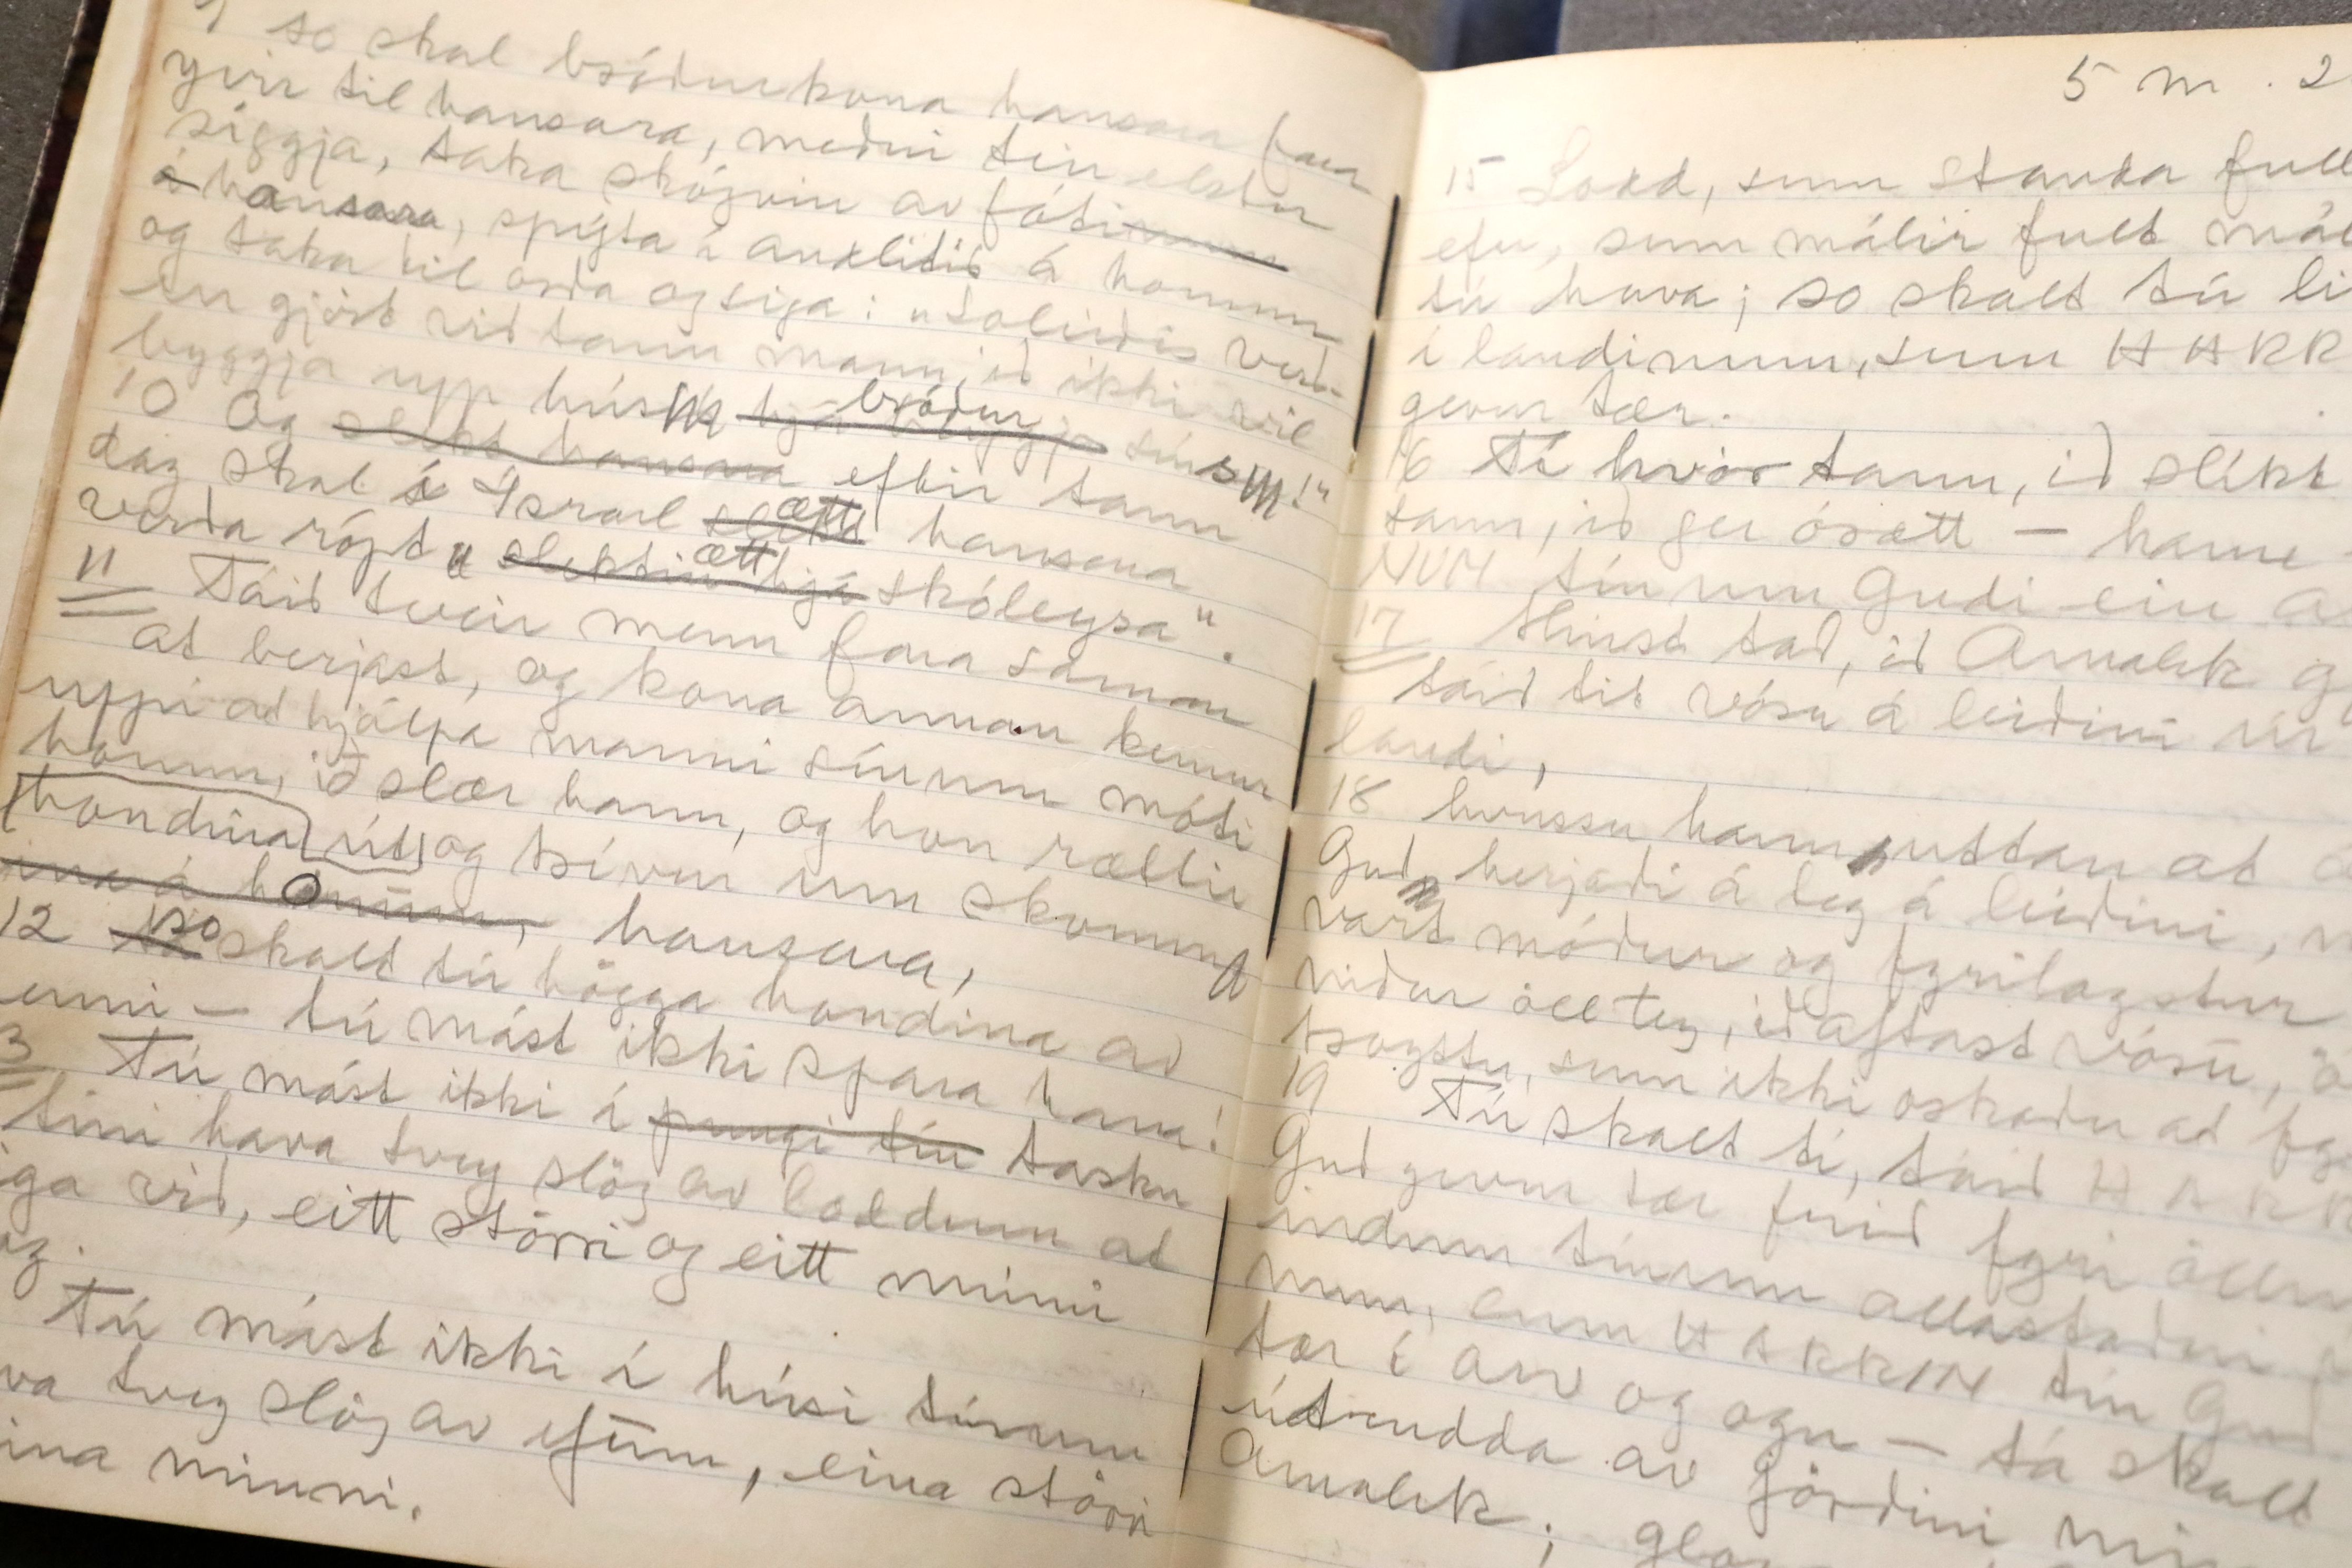 9 so skal bróðurkona hansara fara
yvir til hansara, meðni teir elstu
síggja, taka skógvin av fótinum
á hansara, spýta í anklitið á honum
og taka til orða og siga: „Soleiðis verð-
ur gjört við tann mann, ið ikki vil
byggja upp hús bróður sín
10 Og slekt hansara eftir tann
dag skal í Ísrael ætt hansara
verða rópt „ætt skóleysa“.
11 Táið tveir menn fara saman
at berjast, og kona annan kemur
uppi at hjálpa manni sínum móti
honum, ið slær hann, og hon rættir
hondina út og trívur um skomm
ina á honum, hansara,
12 so skalt tú högga hondina av
enni – tú mást ikki spara hana!
3 Tú mást ikki í pungi tín tasku
tíni hava tvey slög av loddum at
iga við, eitt störri og eitt minni
Tú mást ikki í húsi tínum
va tvey slög av efum, eina störri
ina minni.
5 M. 2
15 Lodd, sum standa full
efu, sum málir fult mál
tú hava; so skalt tú li
í landinum, sum HARR
gevur tær.
16 Tí hvör tann, ið slíkt
tann, ið ger órætt – hann
NUM tínum Gudi ein a
17 Minst tað, ið Amalek g
táið tit vósu á leiðini úr
landi,
18 hvussu hann uttan at
Gud, herjaði á teg á leiðini,
vart móður og fyrilagstur
niður öll tey, ið aftast vósu,
troystu, sum ikki orkaðu at fy
19 Tú skalt tí, táið HARR
Gud gevur tær frið fyri öllum
indum tínum allastaðni
num, sum HARRIN tín Gud
tær í arv og ogn – tá skalt
útrudda av jörðini mi
Amalek;